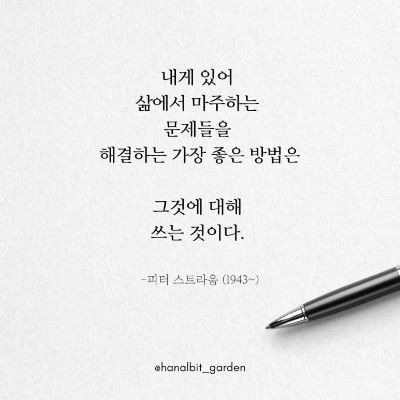 내게 있어
삶에서 마주하는
문제들을
해결하는 가장 좋은 방법은
그것에 대해
쓰는 것이다.
-피터 스트라움 (1943~)
@hanalbit_garden